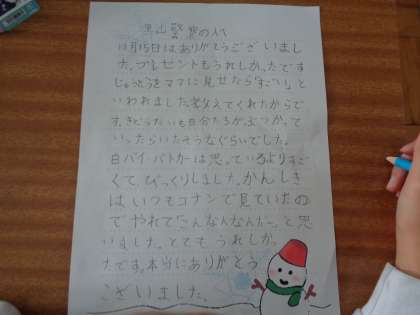 警察の人へ
11月15日はありがとうございまし
た。プレゼントもうれしかったです
じゅうどうをママに見せたら「すごい」と
いわれました。教えてくれたからで
す。きどうたいも自分たちがぶつかっ
ていったらいたそうなぐらいでした。
白バイ・パトカーは思っているよりすご
くて、びっくりしました。かんしき
はいつもコナンで見ていたの
でやれて「こんなんなんだー。」と思
いました。とてもうれしかっ
たです。本当にありがとう
ございました。